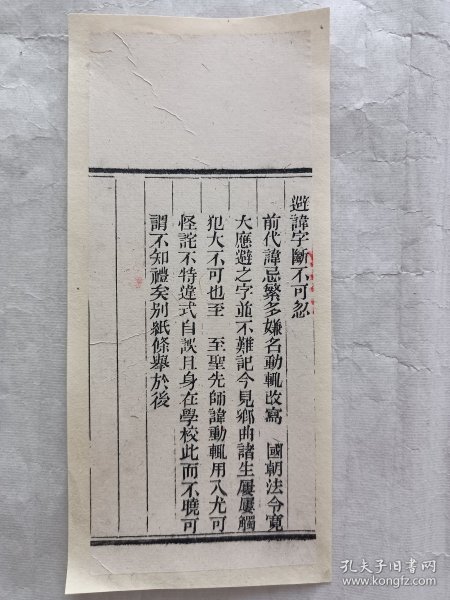 避諱字斷不可忽
前代諱忌繁多嫌名動輒改寫　國朝法令寬
大應避之字並不難記今見鄉曲諸生屢屢觸
犯大不可也至　至聖先師諱動輒用入尤可
怪詫不特違式自誤且身在學校此而不曉可
謂不知禮矣别紙條舉於後
孔夫子旧书网
www.kongfz.com